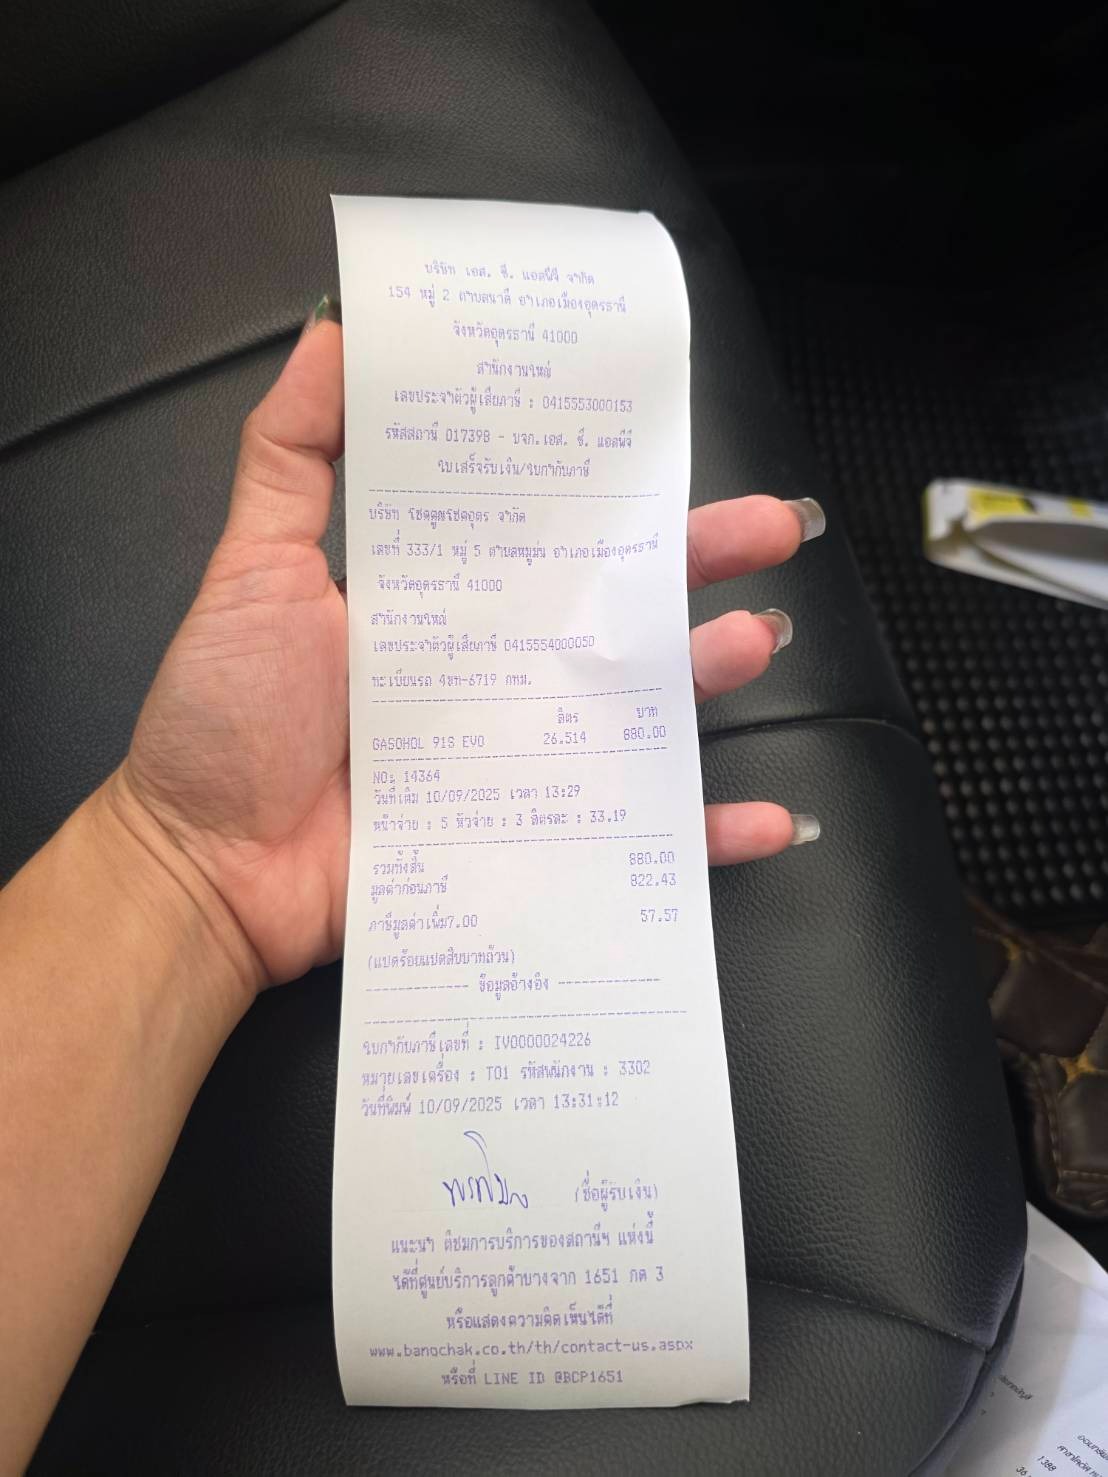 บริษัท เอส. ซี. แอลพีจี จำกัด
154 หมู่ 2 ตำบลนาดี อำเภอเมืองอุดรธานี
จังหวัดอุดรธานี 41000
สำนักงานใหญ่
เลขประจำตัวผู้เสียภาษี : 0415553000153
รหัสสถานี 017398 - บจก.เอส. ซี. แอลพีจี
ใบเสร็จรับเงิน/ใบกำกับภาษี
บริษัท โชคคูณโชคอุดร จำกัด
เลขที่ 333/1 หมู่ 5 ตำบลหมูม่น อำเภอเมืองอุดรธานี
จังหวัดอุดรธานี 41000
สำนักงานใหญ่
เลขประจำตัวผู้เสียภาษี 0415554000050
ทะเบียนรถ 4ขท-6719 กทม.
ลิตร บาท
GASOHOL 91S EVO 26.514 880.00
NO: 14364
วันที่เติม 10/09/2025 เวลา 13:29
หน้าจ่าย : 5 หัวจ่าย : 3 ลิตรละ : 33.19
รวมทั้งสิ้น 880.00
มูลค่าก่อนภาษี 822.43
ภาษีมูลค่าเพิ่ม7.00 57.57
(แปดร้อยแปดสิบบาทถ้วน)
------------- ข้อมูลอ้างอิง -------------
ใบกำกับภาษีเลขที่ : IV0000024226
หมายเลขเครื่อง : T01 รหัสพนักงาน : 3302
วันที่พิมพ์ 10/09/2025 เวลา 13:31:12
(ชื่อผู้รับเงิน)
แนะนำ ติชมการบริการของสถานีฯ แห่งนี้
ได้ที่ศูนย์บริการลูกค้าบางจาก 1651 กด 3
หรือแสดงความคิดเห็นได้ที่
www.bangchak.co.th/th/contact-us.aspx
หรือที่ LINE ID @BCP1651
1388
36